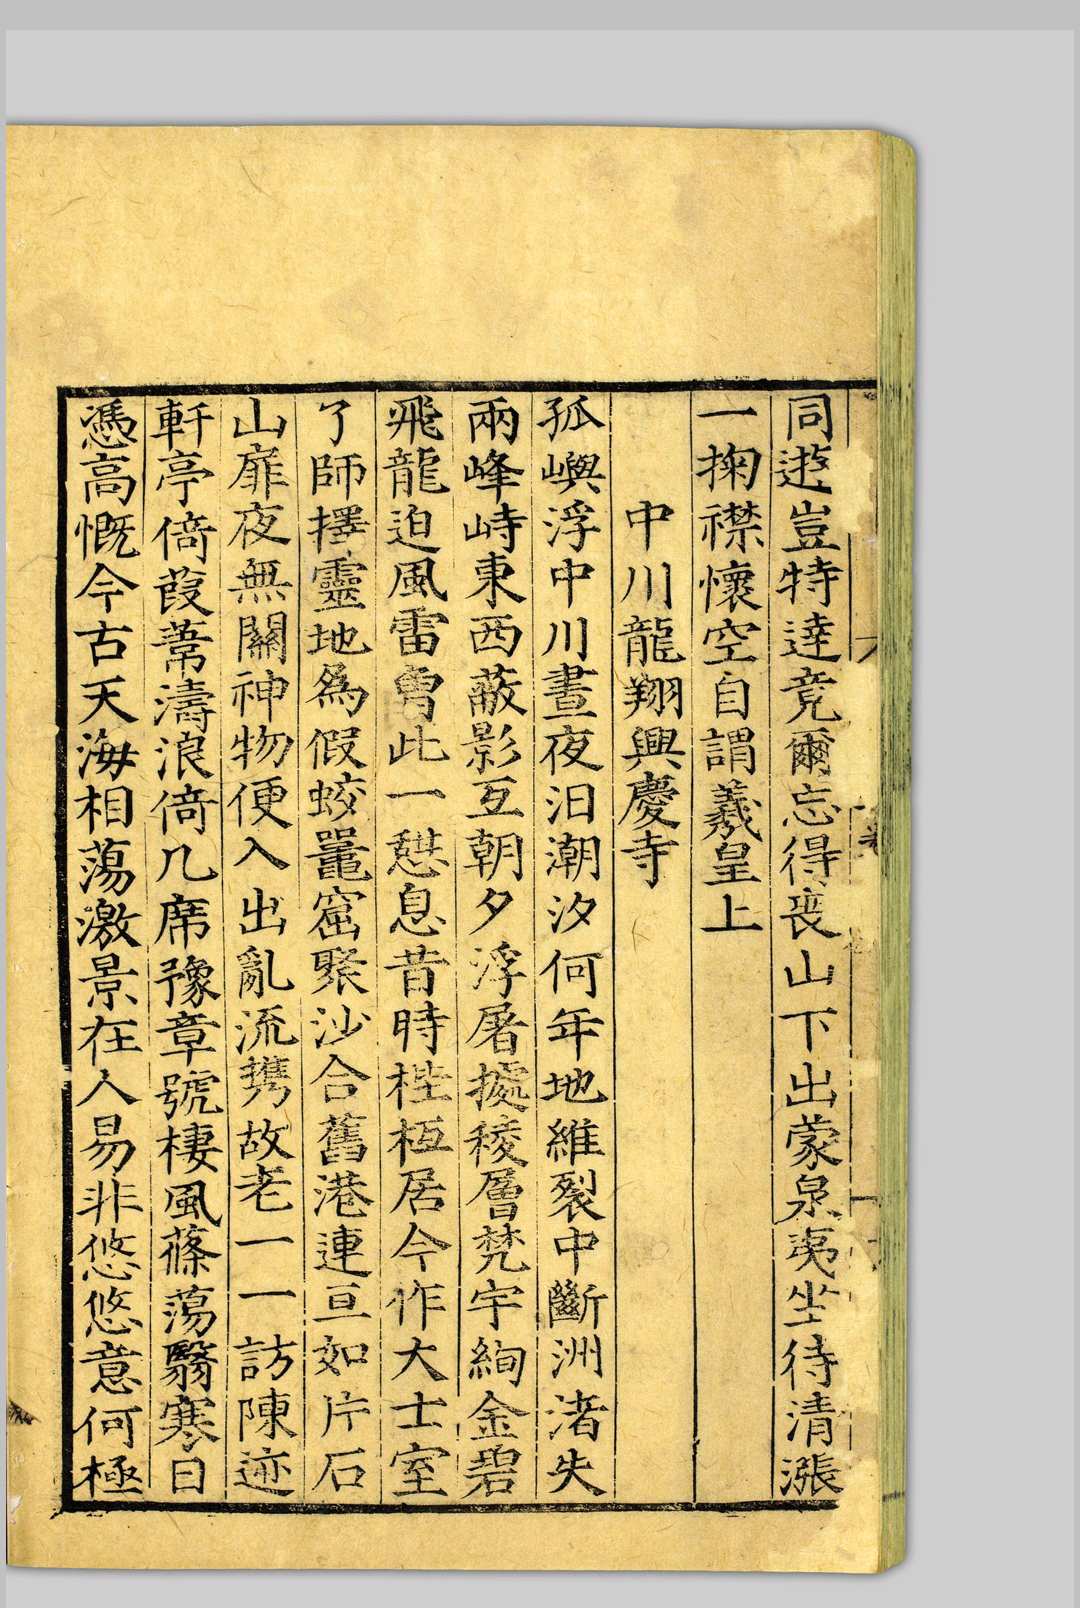 同遊豈特達竟爾忘得喪山下出蒙泉夷坐待清漲
一掬襟懷空自謂羲皇上
中川龍翔興慶寺
孤嶼浮中川晝夜汨潮汐何年地維裂中斷洲渚失
兩峰峙東西蔽影互朝夕浮屠擬稜層梵宇絢金碧
飛龍迫風雷曾此一憇息昔時梐枑居今作大士室
了師擇靈地為假蛟鼉窟聚沙合舊港連亘如片石
山扉夜無關神物便入出亂流携故老一一訪陳迹
軒亭倚葭葦濤浪倚几席豫章號棲風篠蕩翳寒日
憑高慨今古天海相蕩激景在人易非悠悠意何極